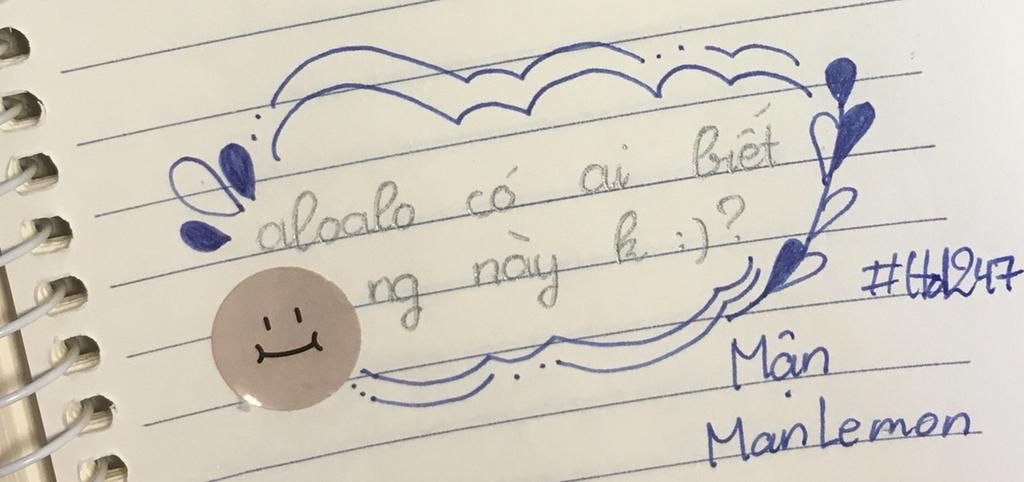 aloalo có ai biết
ng này k :)?
#Hd247
Mận
ManLemon